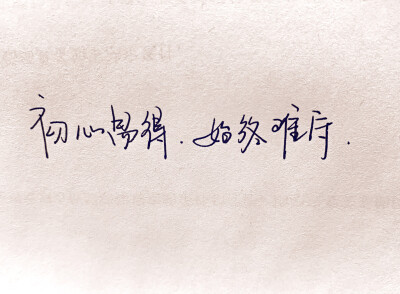 初心易得.始终难守.